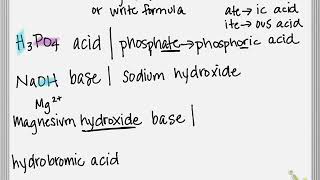 or write formula
ate→ic acid
ite→ous acid
H₃PO₄ acid | phosphate→phosphoric acid
NaOH base | Sodium hydroxide
Mg²⁺
magnesium hydroxide base |
hydrobromic acid